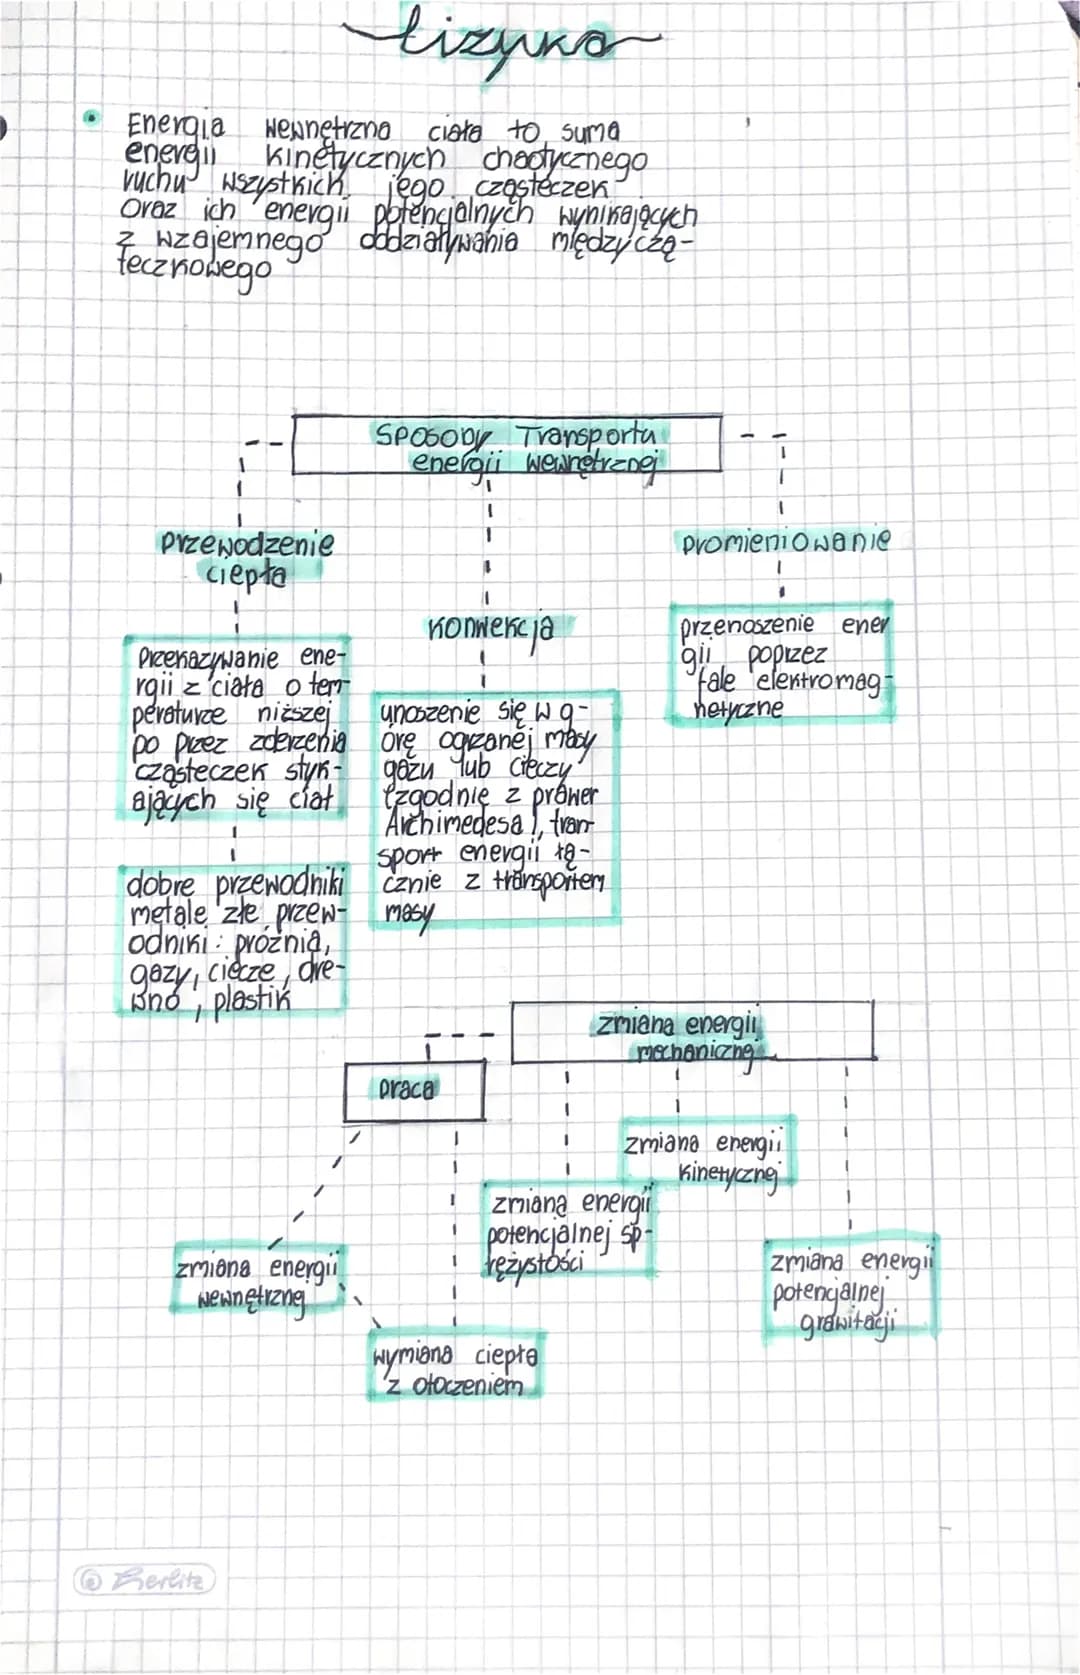 fizyka
Energia wewnętrzna ciała to suma
energii kinetycznych chaotycznego
ruchu wszystkich jego cząsteczek
oraz ich energii potencjalnych wynikających
z wzajemnego oddziaływania międzyczą-
teczkowego
SPOSOBY Transportu
energii wewnętrznej
przewodzenie
ciepła
przekazywanie ene-
rgii z ciała o tem-
peraturze niższej
po przez zderzenia
cząsteczek styk-
ających się ciał
dobre przewodniki
metale złe przew-
odniki: próżnia,
gazy, ciecze, dre-
wno, plastik
konwekcja
unoszenie się w g-
órę ogrzanej masy
gazu lub cieczy
(zgodnie z prawer
Archimedesa), tran-
sport energii łą-
cznie z transportem
masy
promieniowanie
przenoszenie ener
gii poprzez
fale elektromag-
netyczne
zmiana energii
mechanicznej
praca
zmiana energii
kinetycznej
zmiana energii
potencjalnej sp-
rężystości
zmiana energii
wewnętrznej
zmiana energii
potencjalnej
grawitacji
wymiana ciepła
z otoczeniem
Herlitz